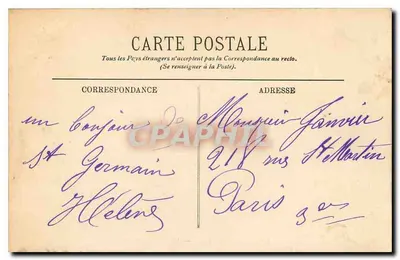 CARTE POSTALE
Tous les Pays étrangers n'acceptent pas la Correspondance au recto.
(Se renseigner à la Poste).
CORRESPONDANCE
ADRESSE
un bonjour de
St Germain
Hélène
Monsieur Janvier
218 rue St Martin
Paris 3e
CPAPHIL